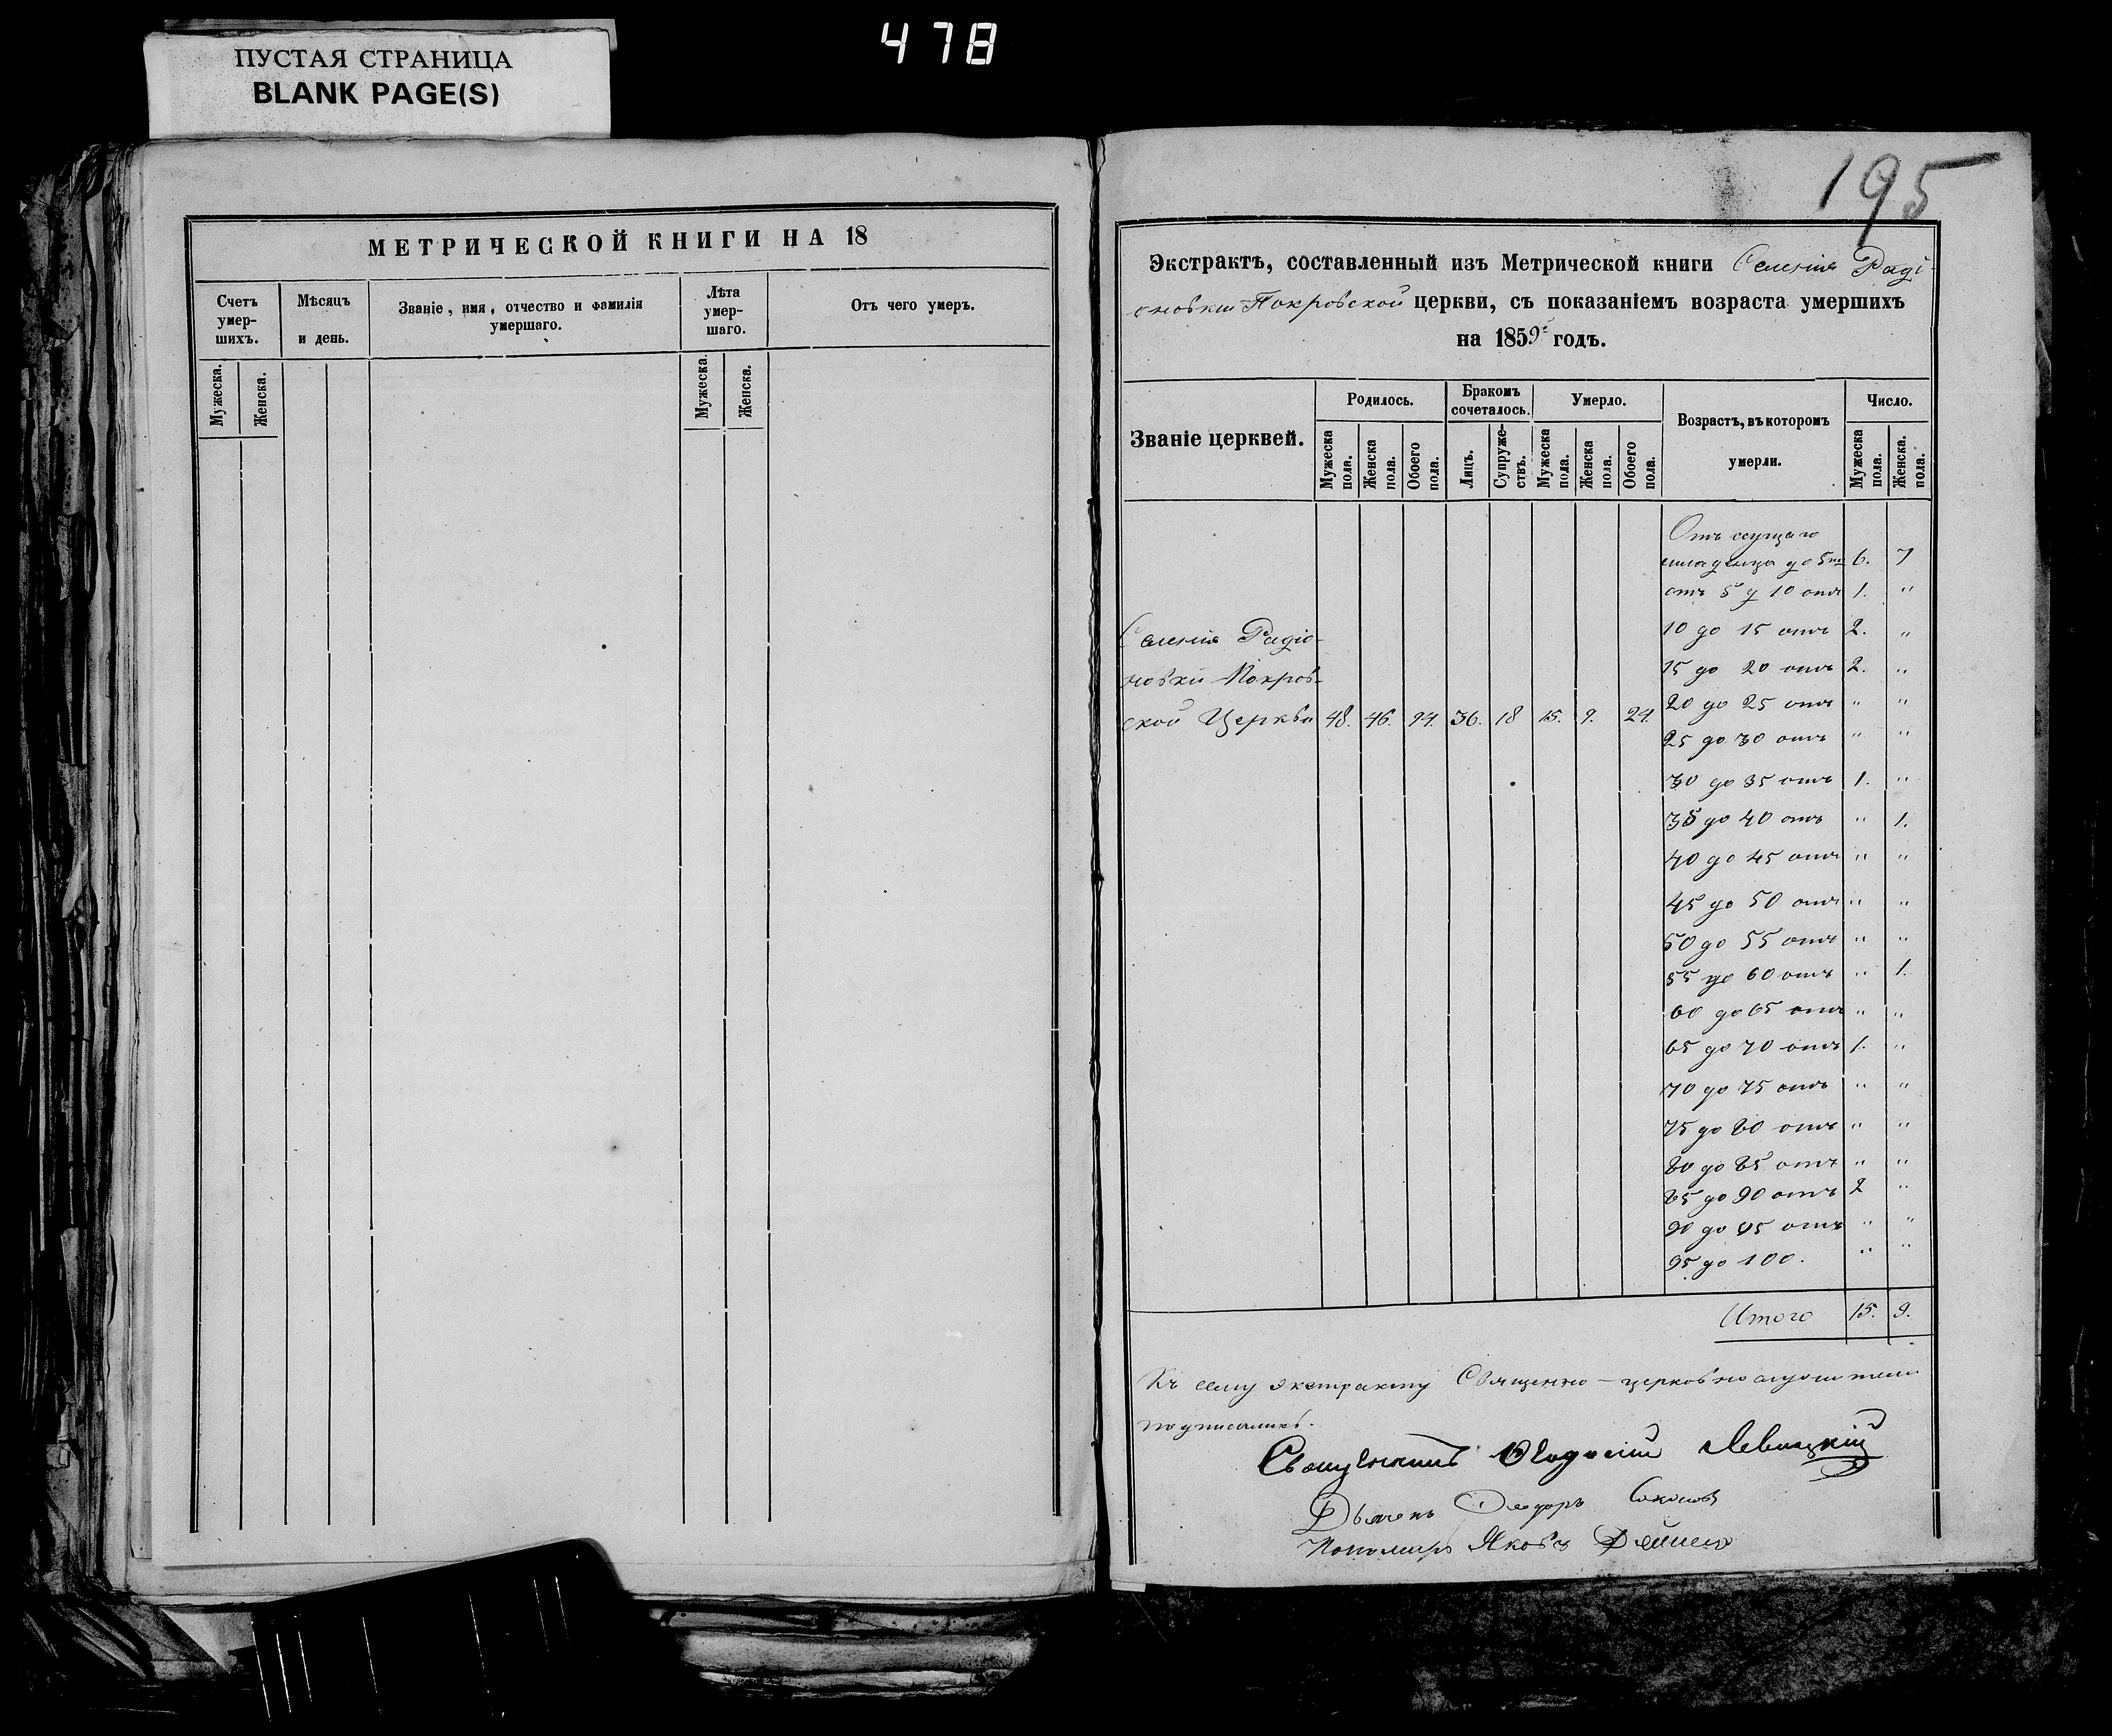 478
ПУСТАЯ СТРАНИЦА
BLANK PAGE(S)
МЕТРИЧЕСКОЙ КНИГИ НА 18
Счетъ умер- шихъ.
Мѣсяцъ и день.
Званіе, имя, отчество и фамилія умершаго.
Лѣта умер- шаго.
Отъ чего умеръ.
Мужеска.
Женска.
Мужеска.
Женска.
195
Экстрактъ, составленный изъ Метрической книги Селенія Раді-
оновки Покровской церкви, съ показаніемъ возраста умершихъ
на 1859 годъ.
Званіе церквей.
Родилось.
Бракомъ сочеталось.
Умерло.
Возрастъ, въ которомъ умерли.
Число.
Мужеска пола.
Женска пола.
Обоего пола.
Лицъ.
Супруже- ствъ.
Мужеска пола.
Женска пола.
Обоего пола.
Мужеска пола.
Женска. пола.
Селенія Радіо-
новки Покров-
ской Церкви 48. 46. 94. 36. 18 15. 9. 24.
Отъ сущаго
младенца до 5ти 6. 7
отъ 5 д 10 отъ 1. "
10 до 15 отъ 2. "
15 до 20 отъ 2. "
20 до 25 отъ " "
25 до 30 отъ " "
30 до 35 отъ 1. "
35 до 40 отъ " 1.
40 до 45 отъ " "
45 до 50 отъ " "
50 до 55 отъ " "
55 до 60 отъ " 1.
60 до 65 отъ " "
65 до 70 отъ 1. "
70 до 75 отъ " "
75 до 80 отъ " "
80 до 85 отъ " "
85 до 90 отъ 2 "
90 до 95 отъ " "
95 до 100. " "
Итого 15. 9.
Къ сему экстракту Священно-церковно служители
подписались.
Священникъ Ѳеодосій Левицкій
Дьячекъ Ѳеодоръ
Пономарь Яковъ